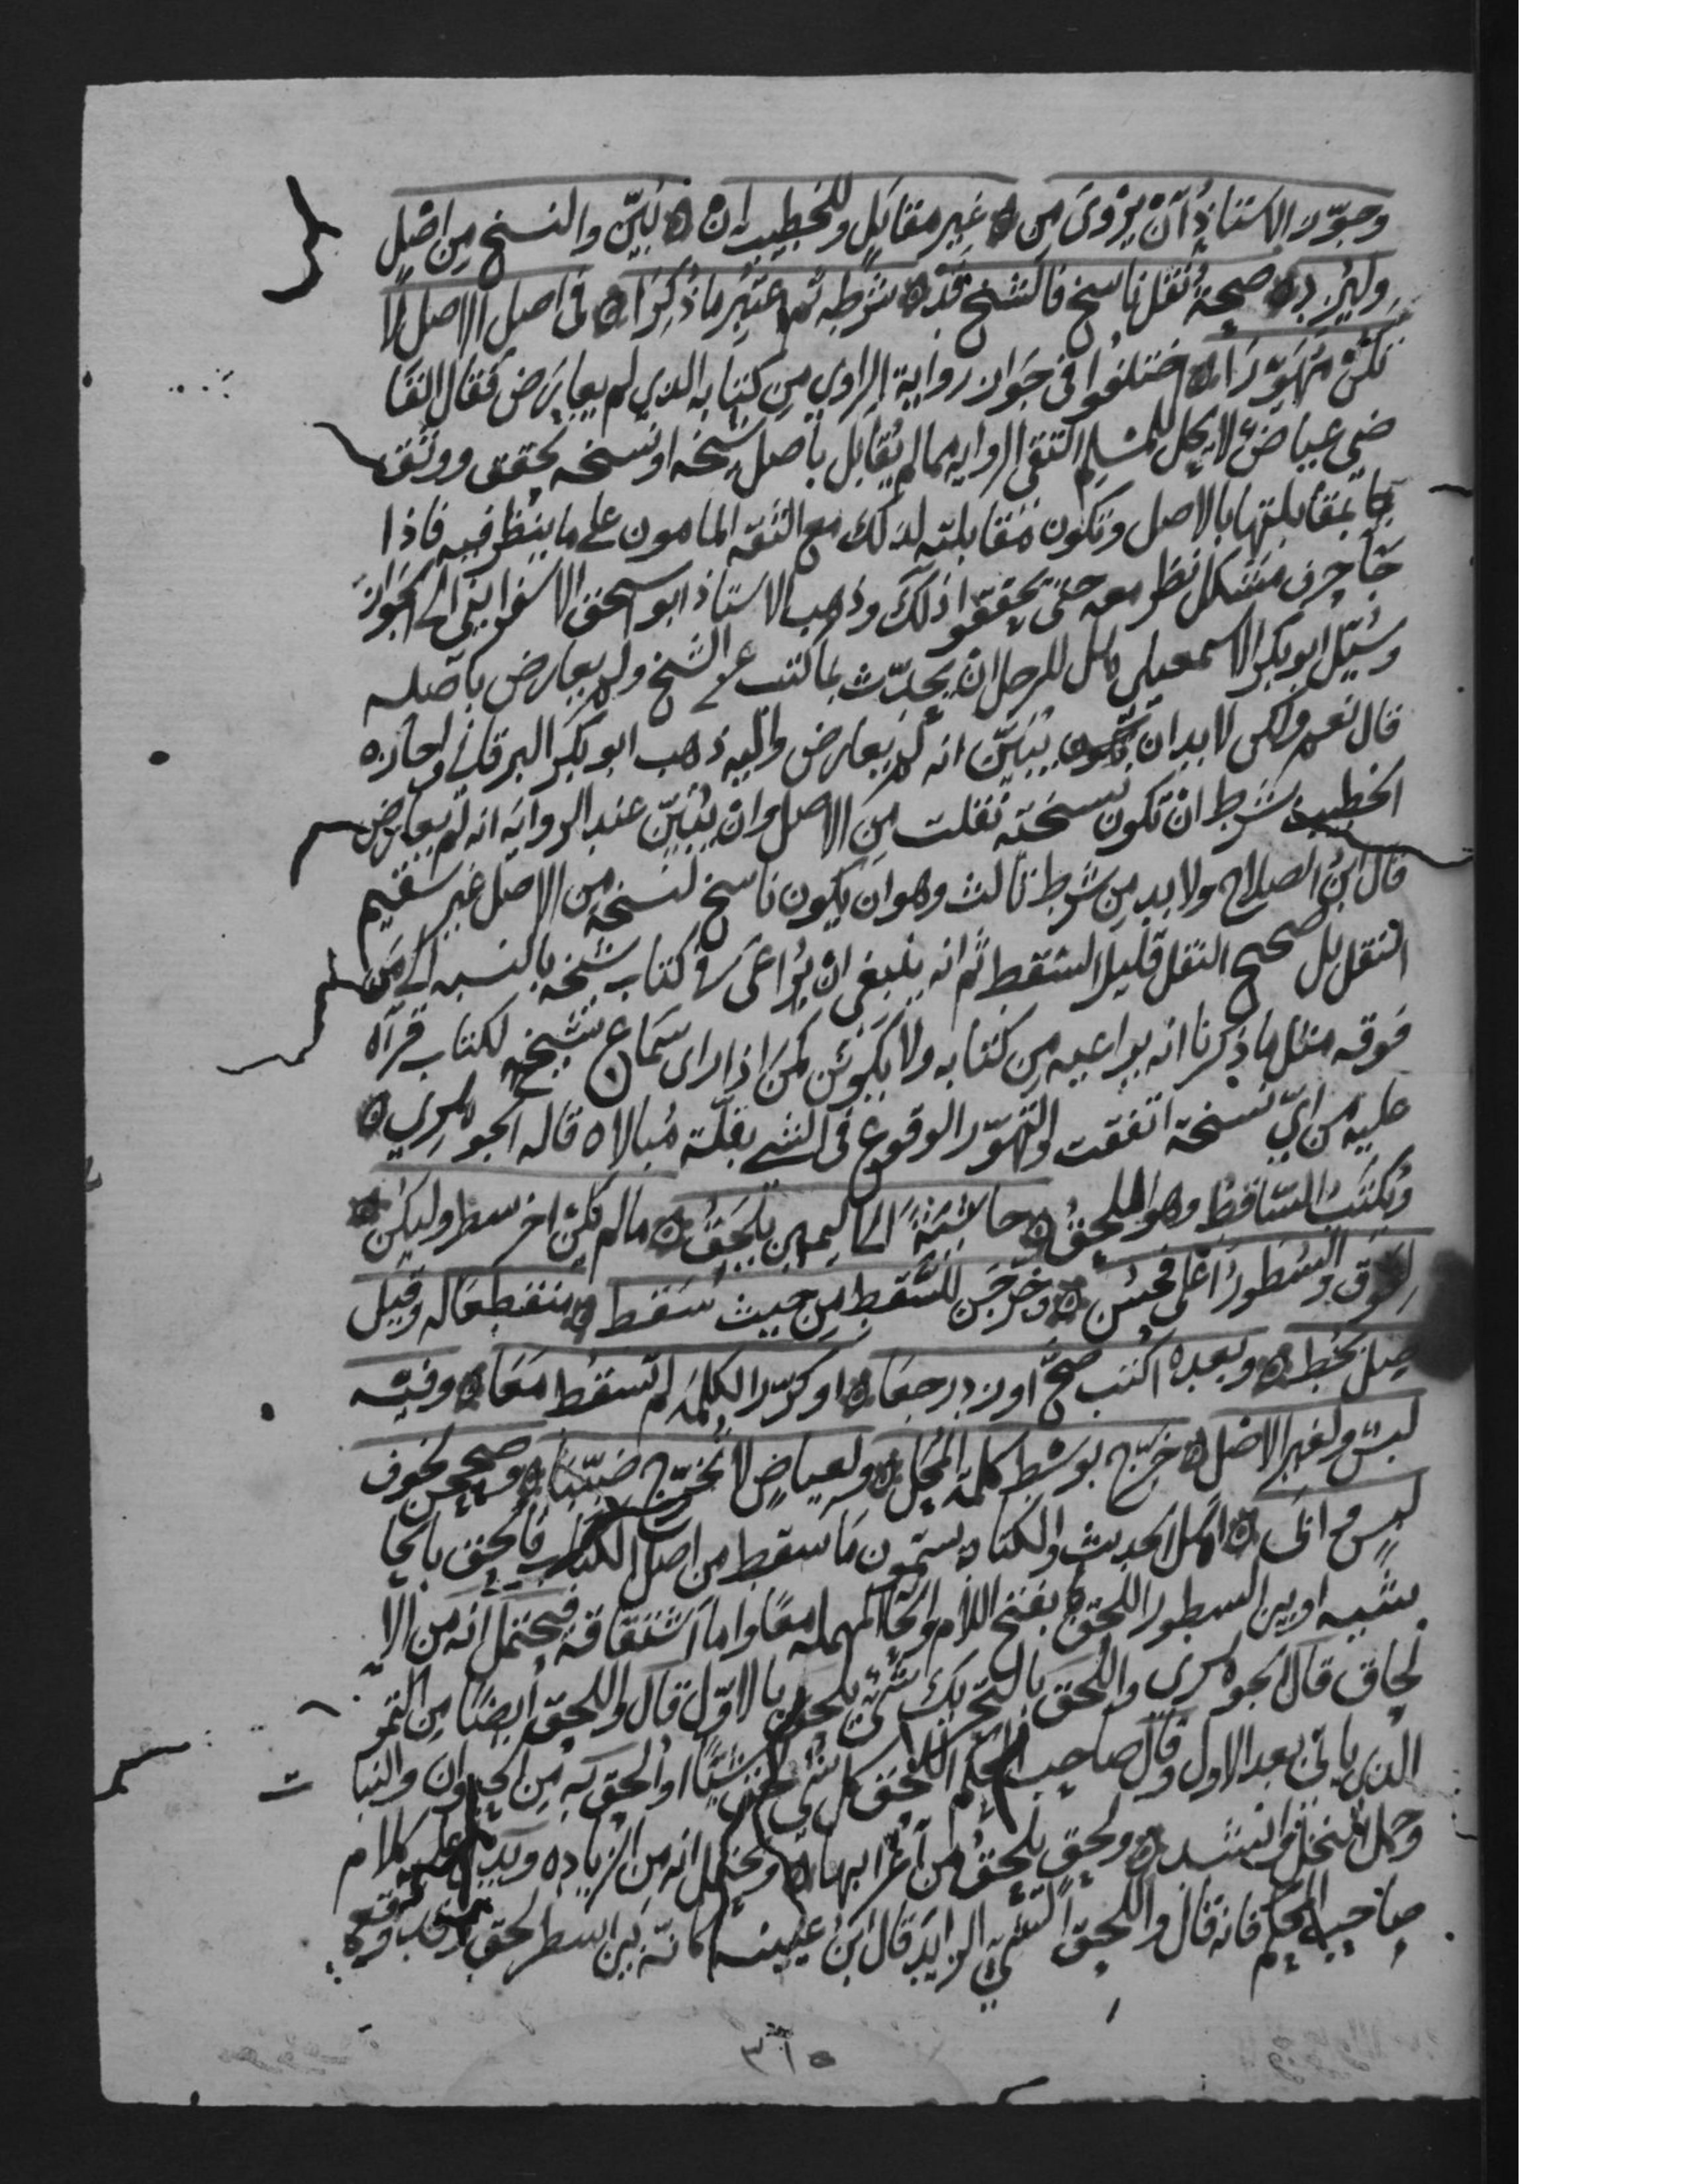 وجوّز الاستاذُ أنْ يروِيَ مِن ۞ غيرِ مقابَلٍ وللخطيب ان ۞ بَيّن والنسخ مِن اصْلٍ
وليُزَد ۞ صحةُ نَقل ناسخ فالشيخ قد ۞ شرطه ثم اعتَبِر ما ذُكِرَا ۞ في اصل الاصل لا
تكنْ مُهَوِّرَا ۞ اختلفوا في جَواز رواية الراوي مِن كتابه الذي لم يعارَض فقال القا
ضي عياضٌ لا يحل للمُسلِم التقي الرواية مما لم يُقابل بأصل شيخه او نسخه تحقق ووثق
بمقابلتها بالاصل وتكون مُقابلته لذلك مع الثقه المامون على ما ينظر فيه فاذا
جَآ حرف مشكل نظر معه حتى يحققوا ذلك وذهب الاستاذ ابو اسحق الاسفراينى الى الجَواز
وسُئِل ابو بكر الاسمعيلي هل للرجل ان يحدّث بما كتب عن الشيخ ولم يعارض باصله
قال نعم ولكن لا بد ان يُبَيّن انه لم يعارض واليه ذهب ابو بكر البرقاني واجازه
الخطيب بشرط ان تكون نسخته نقلت مِن الاصل وان يُبَيّن عند الرواية انه لم يعارض
قال ابنُ الصلاح ولا بد مِن شرط ثالث وهو ان يكون ناسخ لنسخه مِن الاصل غير سَقيم
النقل بل صحيح النقل قليل السقط ثم انه ينبغي ان يُراعى في كتاب شيخه بالنسبه الى مَن
فوقه مثل ما ذكرنا انه يراعيه مِن كتابه ولا يكونَن كمَن اذا راى سَماع شيخه لكتاب قرآه
عليه من ايّ نسخة اتفقت والتهوّر الوقوع في الشي بقلّة مُبالاه قاله الجوهري ۞
ويُكتَبُ السّاقطُ وهو اللحقُ ۞ حاشيةً الى اليمين يلحَقُ ۞ ما لم يكن اخر سطر وليكن ۞
لِفوق والسُطورُ اعْلى فحَسُن ۞ وخرّجَن للسَّقط مِن حيث سَقط ۞ منعطفا له وقيل
صِل بخط ۞ وبعده اكتب صحّ او زد رجعَا ۞ او كرّر الكلمة لم تسقط مَعَا ۞ وفيه
لبسٌ ولغير الاصْل ۞ خرّج بوَسْط كلمة المَحَل ۞ ولعياضٍ لا تخرّج ضبّبَا ۞ وصححن لخوف
لبسٍ اهل الحديث والكتابه يسمّون ما سقط من اصل الكتاب فأُلحق بالحا
شيه او بين السطور اللحق بفتح اللام والحَآ المهمله معًا واما اشتقاقه فيحتمل انه من الا
لحاق قال الجوهرى واللحق بالتحريك شىٌ يلحق بالاوّل قال واللحق أيضًا مِن التمر
الذي ياتي بعد الاول وقال صاحب المحكم اللحق كل شى لحق شيًا او الحق به مِن الحيوان والنبا
وحمل النخل وانشد ۞ ولحق يلحقُ من أعْرابها ۞ ويحتمل انه من الزياده ويدل عليه كلام
صاحب المحكم فانه قال واللحق الشيُ الزايد قال ابن عيينه ۞ كانّه بَين اسطر لحق
٣٦٥